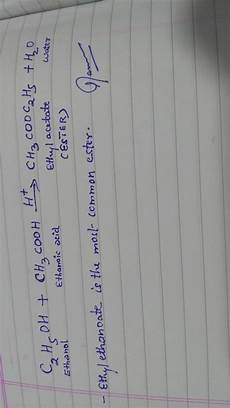 C₂H₅OH + CH₃COOH H⁺→ CH₃COOC₂H₅ + H₂O
Ethanol Ethanoic acid Ethyl acetate Water
(ESTER)
- Ethyl ethanoate is the most common ester.